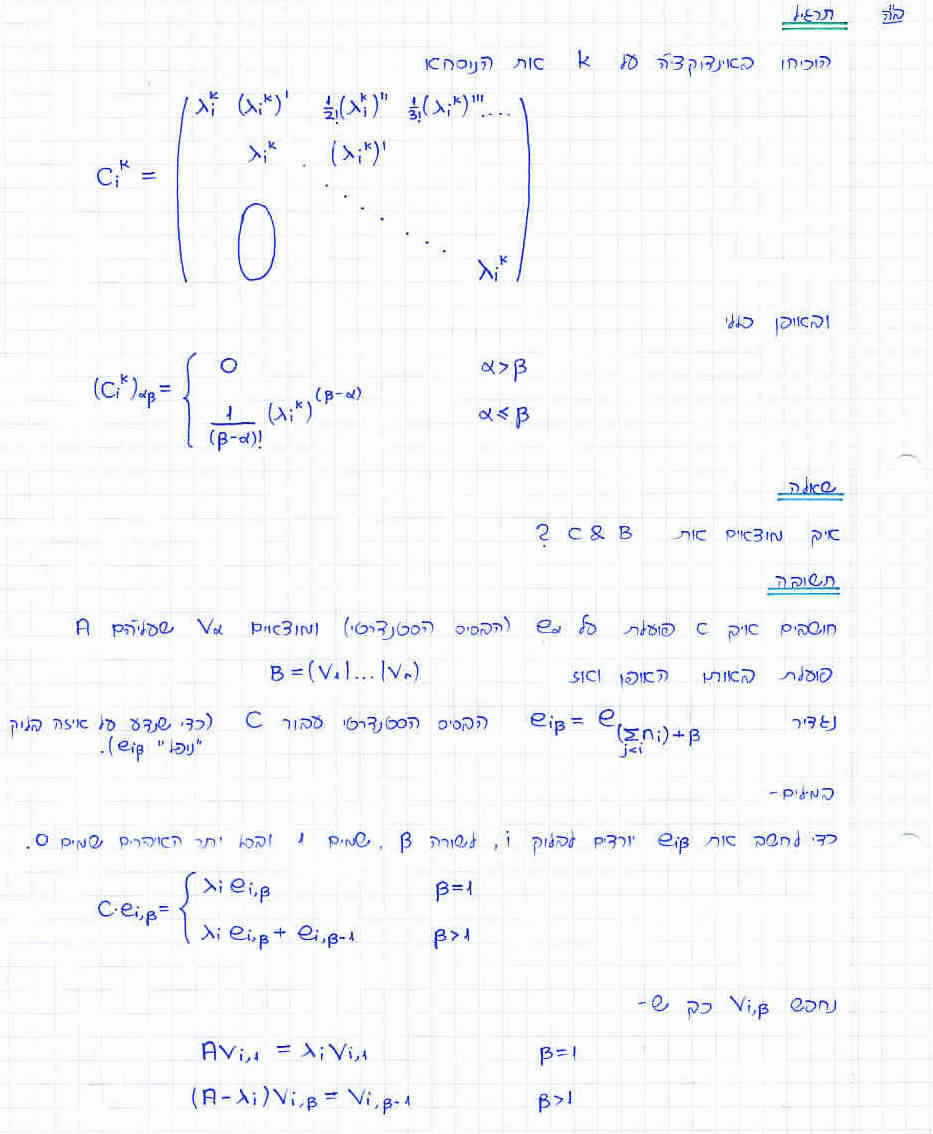 בה תרגיל
הוכיחו באינדוקציה על k את הנוסחא
C_i^k = ( λ_i^k (λ_i^k)' 1/2! (λ_i^k)'' 1/3! (λ_i^k)''' ...
λ_i^k (λ_i^k)'
0
λ_i^k )
ובאופן כללי
(C_i^k)_{αβ} = { 0 α>β
1/(β-α)! (λ_i^k)^{(β-α)} α≤β
שאלה
איך מוצאים את C & B ?
תשובה
חושבים איך C פועלת על e_α (הבסיס הסטנדרטי) ומוצאים V_α שעליהם A
פועלת באותו האופן ואז B=(V_1|...|V_n)
נגדיר e_{iβ} = e_{(Σ_{j<i} n_i)+β} הבסיס הסטנדרטי עבור C (כדי שנדע על איזה בלוק
"נופל" e_{iβ}).
במילים-
כדי לחשב את e_{iβ} יורדים לבלוק i, לשורה β, שמים 1 ובכל יתר האיברים שמים 0.
C·e_{i,β} = { λ_i e_{i,β} β=1
λ_i e_{i,β} + e_{i,β-1} β>1
נחפש V_{i,β} כך ש-
AV_{i,1} = λ_i V_{i,1} β=1
(A-λ_i)V_{i,β} = V_{i,β-1} β>1